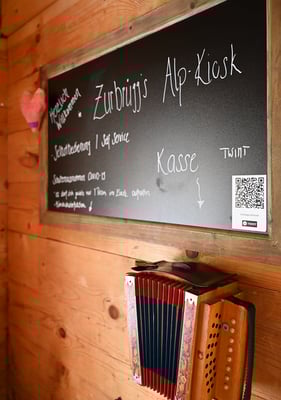 Herzlich
Willkommen
Zurbrügg's Alp-Kiosk
Selbstbedienung / Self Service
Kasse
TWINT
Schutzmassnahmen COVID-19
- Es darf sich jeweils nur 1 Person im Kiosk aufhalten